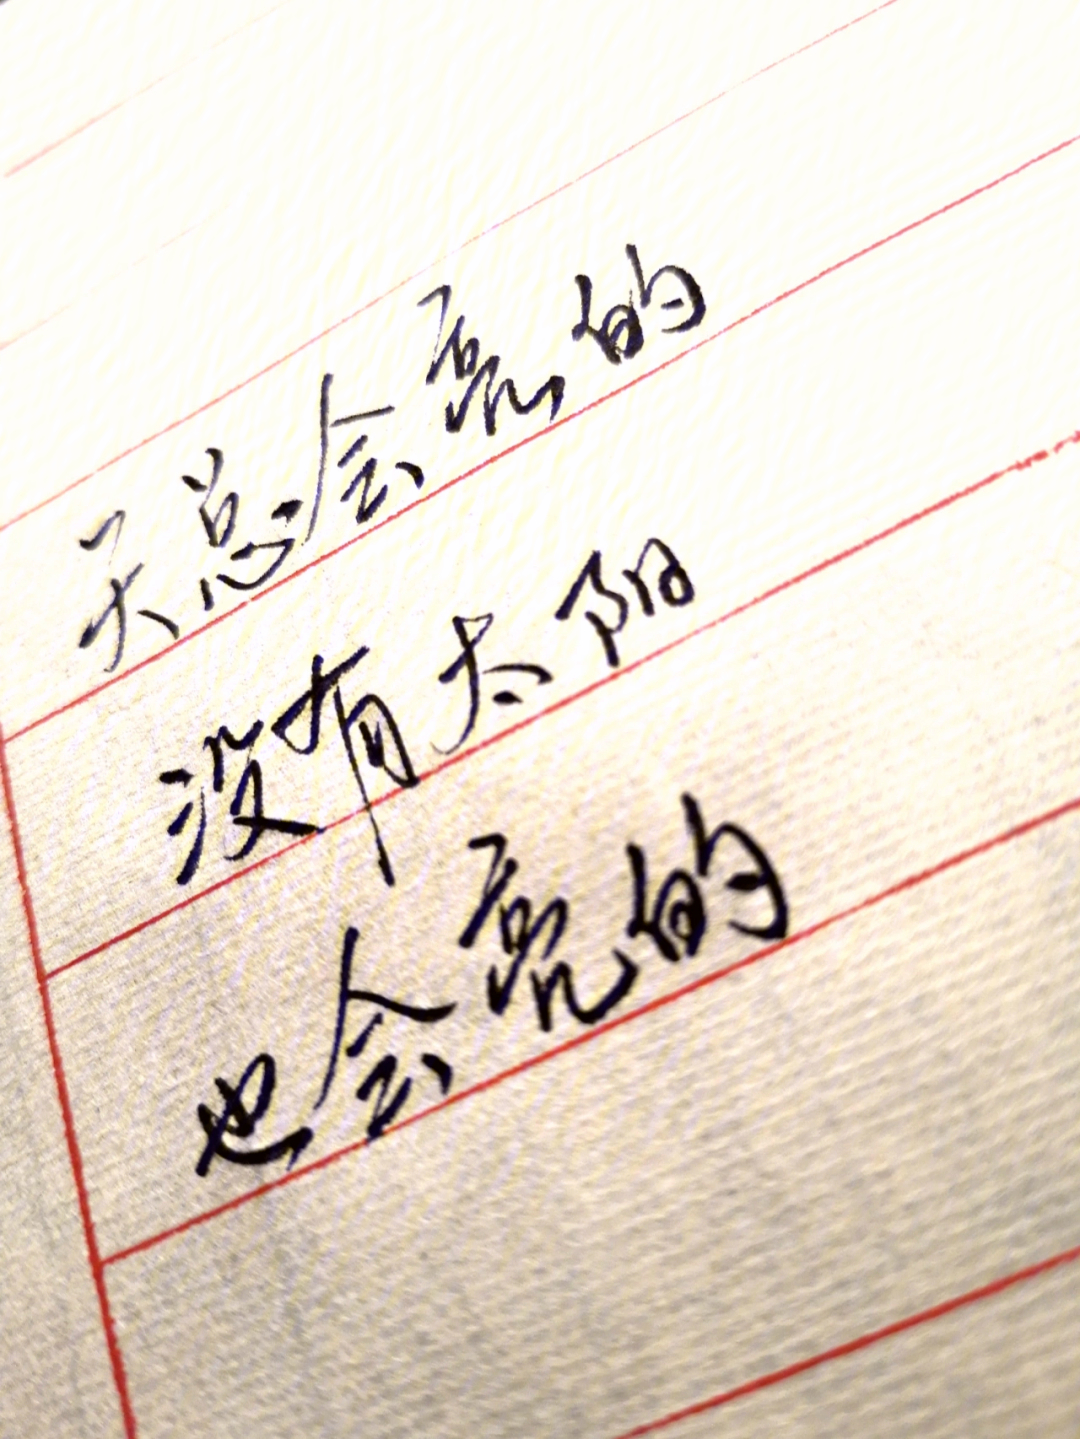 天总会亮的
没有太阳
也会亮的